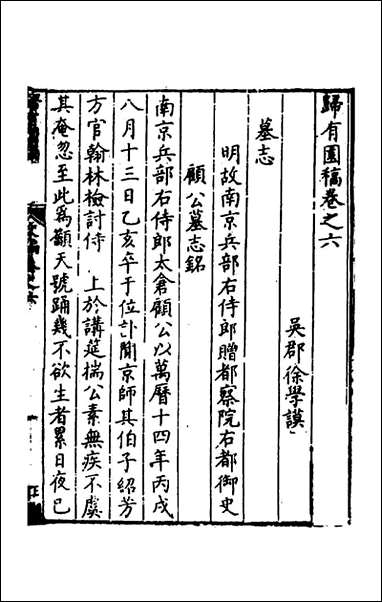 歸有園稿卷之六
吳郡徐學謨
墓志
明故南京兵部右侍郎贈都察院右都御史
顧公墓志銘
南京兵部右侍郎太倉顧公以萬曆十四年丙戌
八月十三日乙亥卒于位訃聞京師其伯子紹芳
方官翰林檢討侍　上於講筵揣公素無疾不虞
其奄忽至此爲籲天號踊幾不欲生者累日夜已